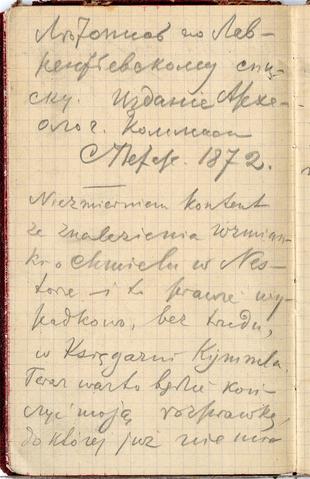 Лѣтопись по Лав-
рентьевскому спи-
ску. Изданіе Архе-
олог. Коммисс
Петерб. 1872.
Niezmiernie kontent
ze znalezienia wzmian-
ki o chmielu w Nes-
torze – i to prawie wy-
padkowo, bez trudu,
w Księgarni Kymmla.
Teraz warto będzie koń-
czyć moją rozprawkę,
do której już nie mia